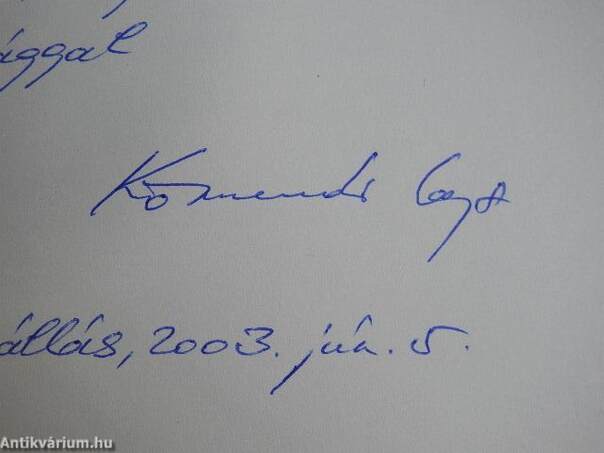 ággal
Körmendi Lajos
állás, 2003. jún. 5.
Antikvárium.hu